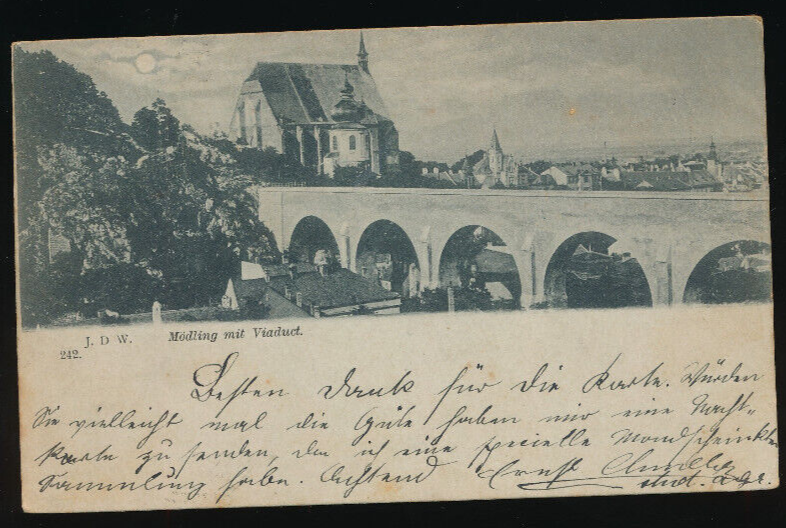 J. D W.
242.
Mödling mit Viaduct.
Besten Dank für die Karte. Würden
Sie vielleicht mal die Güte haben mir eine Nacht-
Karte zu senden, da ich eine specielle Mondscheinkten
Sammlung habe. Achtend Ernst
stud. agr.